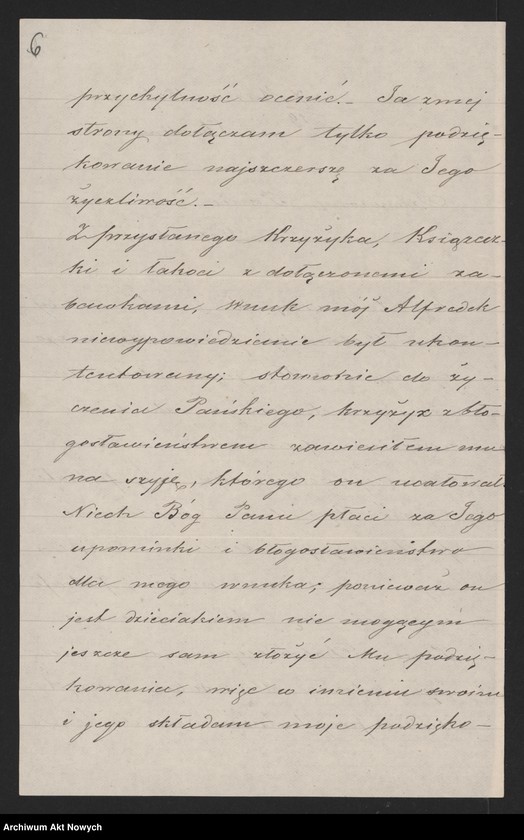 6
przychylność ocenić. – Ja z mej
strony dołączam tylko podzię-
kowanie najszczerszę za Jego
życzliwość. –
Z przysłanego Krzyżyka, Książecz-
ki i łakoci z dołączonemi za-
bawkami, wnuk mój Alfredek
niewypowiedzianie był ukon-
tentowany; stosownie do ży-
czenia Pańskiego, krzyżyk z bło-
gosławieństwem zawiesiłem mu
na szyję, którego on ucałował.
Niech Bóg Panu płaci za Jego
upominki i błogosławieństwo
dla mego wnuka; ponieważ on
jest dzieciakiem nie mogącym
jeszcze sam złożyć Mu podzię-
kowania, więc w imieniu swoim
i jego składam moje podzięko-
Archiwum Akt Nowych